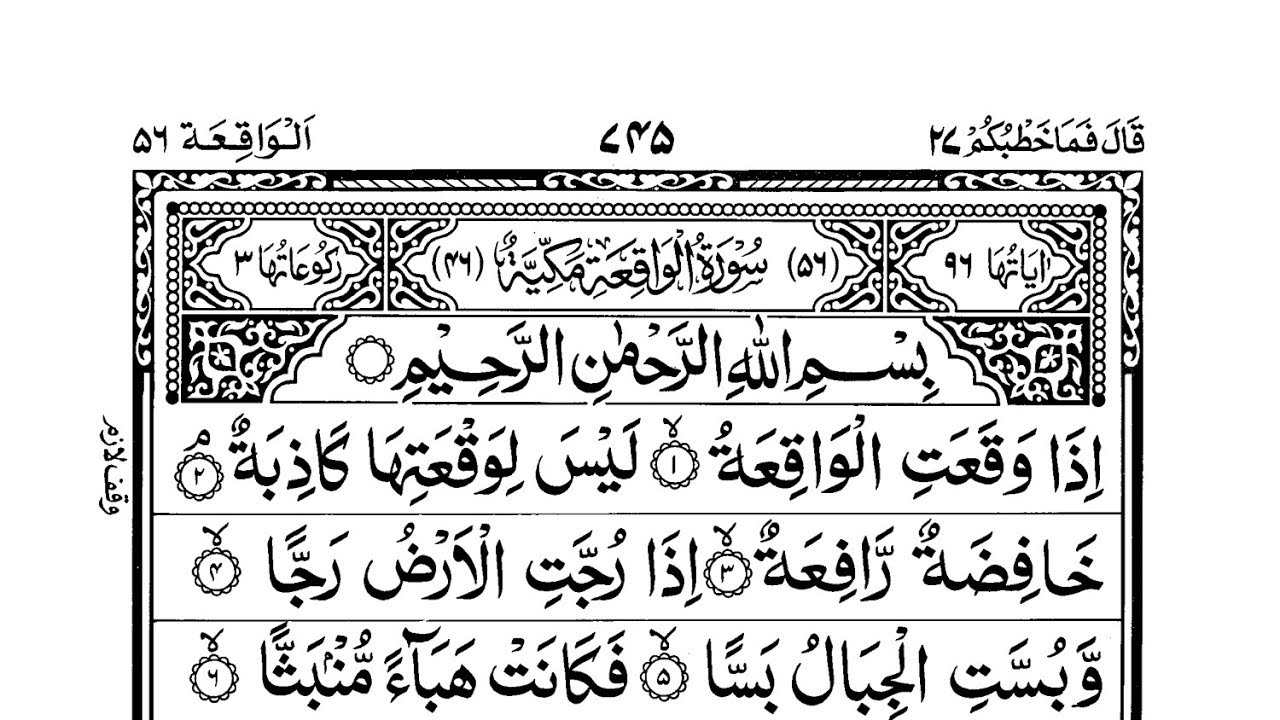 قَالَ فَمَا خَطْبُكُمْ ۲۷
۷۴۵
اَلْوَاقِعَة ۵۶
اٰيَاتُهَا ۹۶
(۵۶) سُوْرَةُ الْوَاقِعَةِ مَكِّيَّةٌ (۴۶)
رُكُوْعَاتُهَا ۳
بِسْمِ اللّٰهِ الرَّحْمٰنِ الرَّحِيْمِ
اِذَا وَقَعَتِ الْوَاقِعَةُ ۙ‏﴿۱﴾ لَيْسَ لِوَقْعَتِهَا كَاذِبَةٌ ۘ‏﴿۲﴾
وقف لازم
خَافِضَةٌ رَّافِعَةٌ ۙ‏﴿۳﴾ اِذَا رُجَّتِ الْاَرْضُ رَجًّا ۙ‏﴿۴﴾
وَّبُسَّتِ الْجِبَالُ بَسًّا ۙ‏﴿۵﴾ فَكَانَتْ هَبَآءً مُّنْۢبَثًّا ۙ‏﴿۶﴾